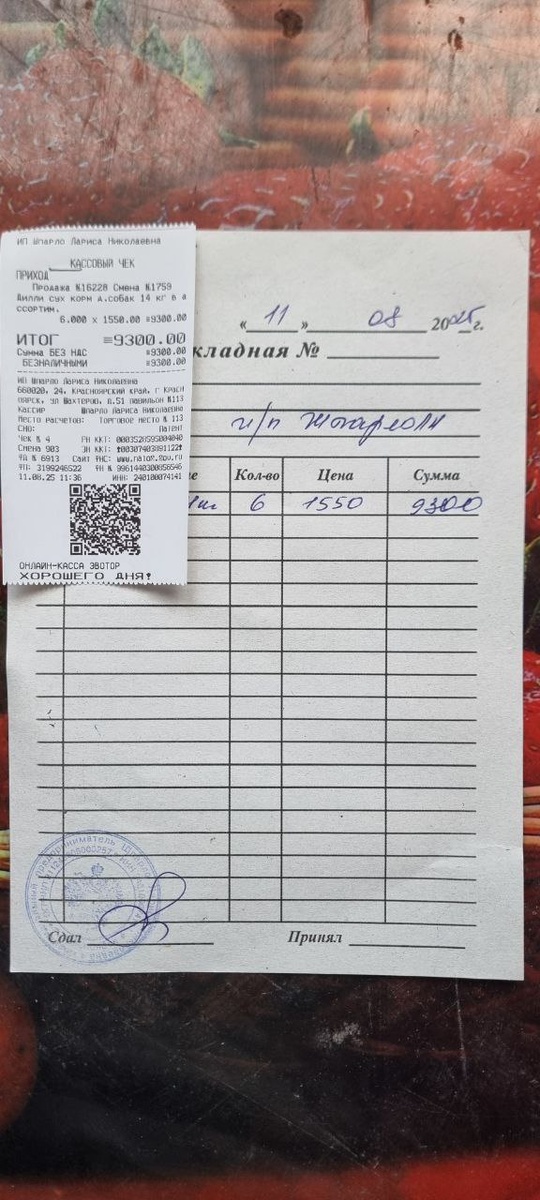 ИП Шпарло Лариса Николаевна
КАССОВЫЙ ЧЕК
ПРИХОД
Продажа №16228 Смена №1759
Дилли сух корм д.собак 14 кг в а
ссортим.
6.000 x 1550.00 =9300.00
ИТОГ =9300.00
Сумма БЕЗ НДС =9300.00
БЕЗНАЛИЧНЫМИ =9300.00
ИП Шпарло Лариса Николаевна
660020, 24, Красноярский край, г Красн
оярск, ул Шахтеров, д.51 павильон №113
Кассир Шпарло Лариса Николаевна
Место расчетов: Торговое место № 113
СНО: Патент
Чек № 4 РН ККТ:
Смена 903 ЗН ККТ:
ФД № 6913 Сайт ФНС: www.nalog.gov.ru
ФП: 3199246522 ФН №
11.08.25 11:36 ИНН:
ОНЛАЙН-КАССА ЭВОТОР
ХОРОШЕГО ДНЯ!
« 11 » 08 2025г.
кладная №
и/п
Кол-во Цена Сумма
6 1550 9300
Сдал Принял